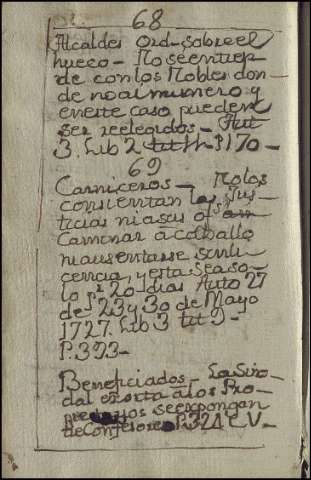 68
Alcaldes Ord- sobre el
hueco - No se entien
de con los Nobles don
de no ai numero y
en este caso pueden
ser reelegidos - Aut
3. Lib 2 tit P 170 -
69
Carniceros - No los
consientan las Jus
ticias ni a sus
Caminar a Caballo
ni ausentarse sin li
cencia, y esta sea so
lo Pr 20 dias Auto 27
de 23 y 30 de Mayo
1727. Lib 3 tit 9 -
P. 393 -
Beneficiados - La Sino
dal exorta a los Pro
se expongan
de Confesores P. 324 C. V -